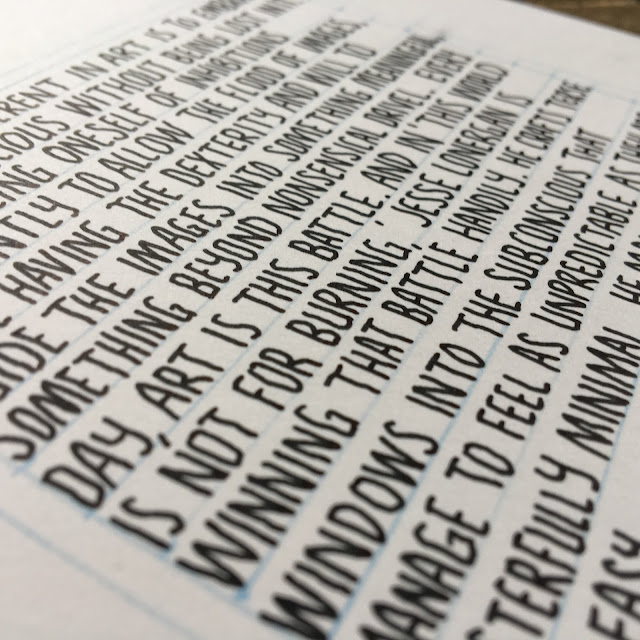 RENT IN ART IS TO
COUS WITHOUT BEING
ING ONESELF OF INHIBITIONS
NTLY TO ALLOW THE FLOOD OF IMAGES
HAVING THE DEXTERITY AND WILL TO
IDE THE IMAGES INTO SOMETHING
SOMETHING BEYOND NONSENSICAL EVERY
DAY, ART IS THIS BATTLE AND IN 'THIS WORLD
IS NOT FOR BURNING,' JESSE LONERGAN IS
WINNING THAT BATTLE HANDILY. HE CRAFTS THESE
WINDOWS INTO THE SUBCONSCIOUS THAT
ANAGE TO FEEL AS UNPREDICTABLE AS
STERFULLY MINIMAL. HE
EASY